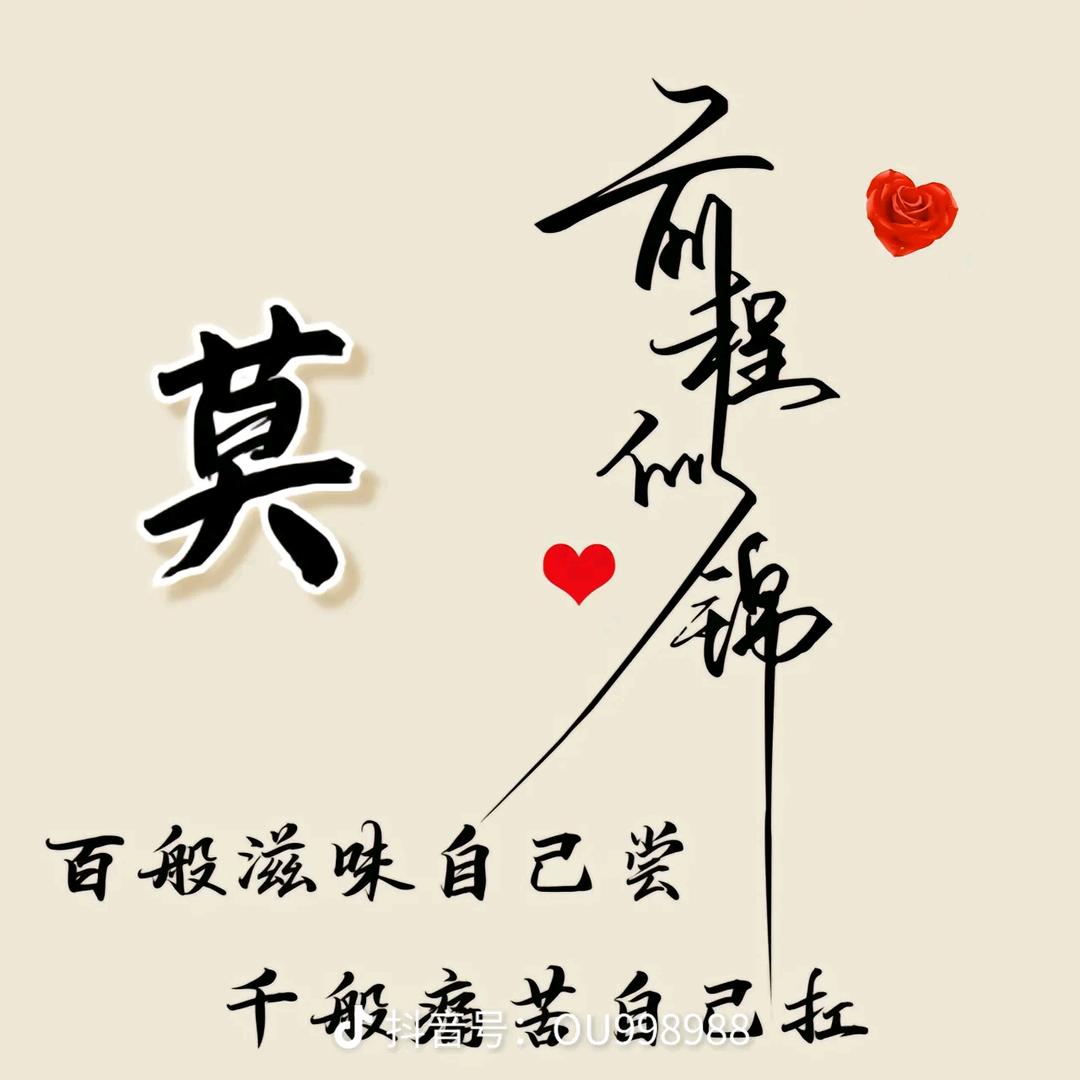 莫
前程似锦
百般滋味自己尝
千般痛苦自己扛
抖音号：OU998988